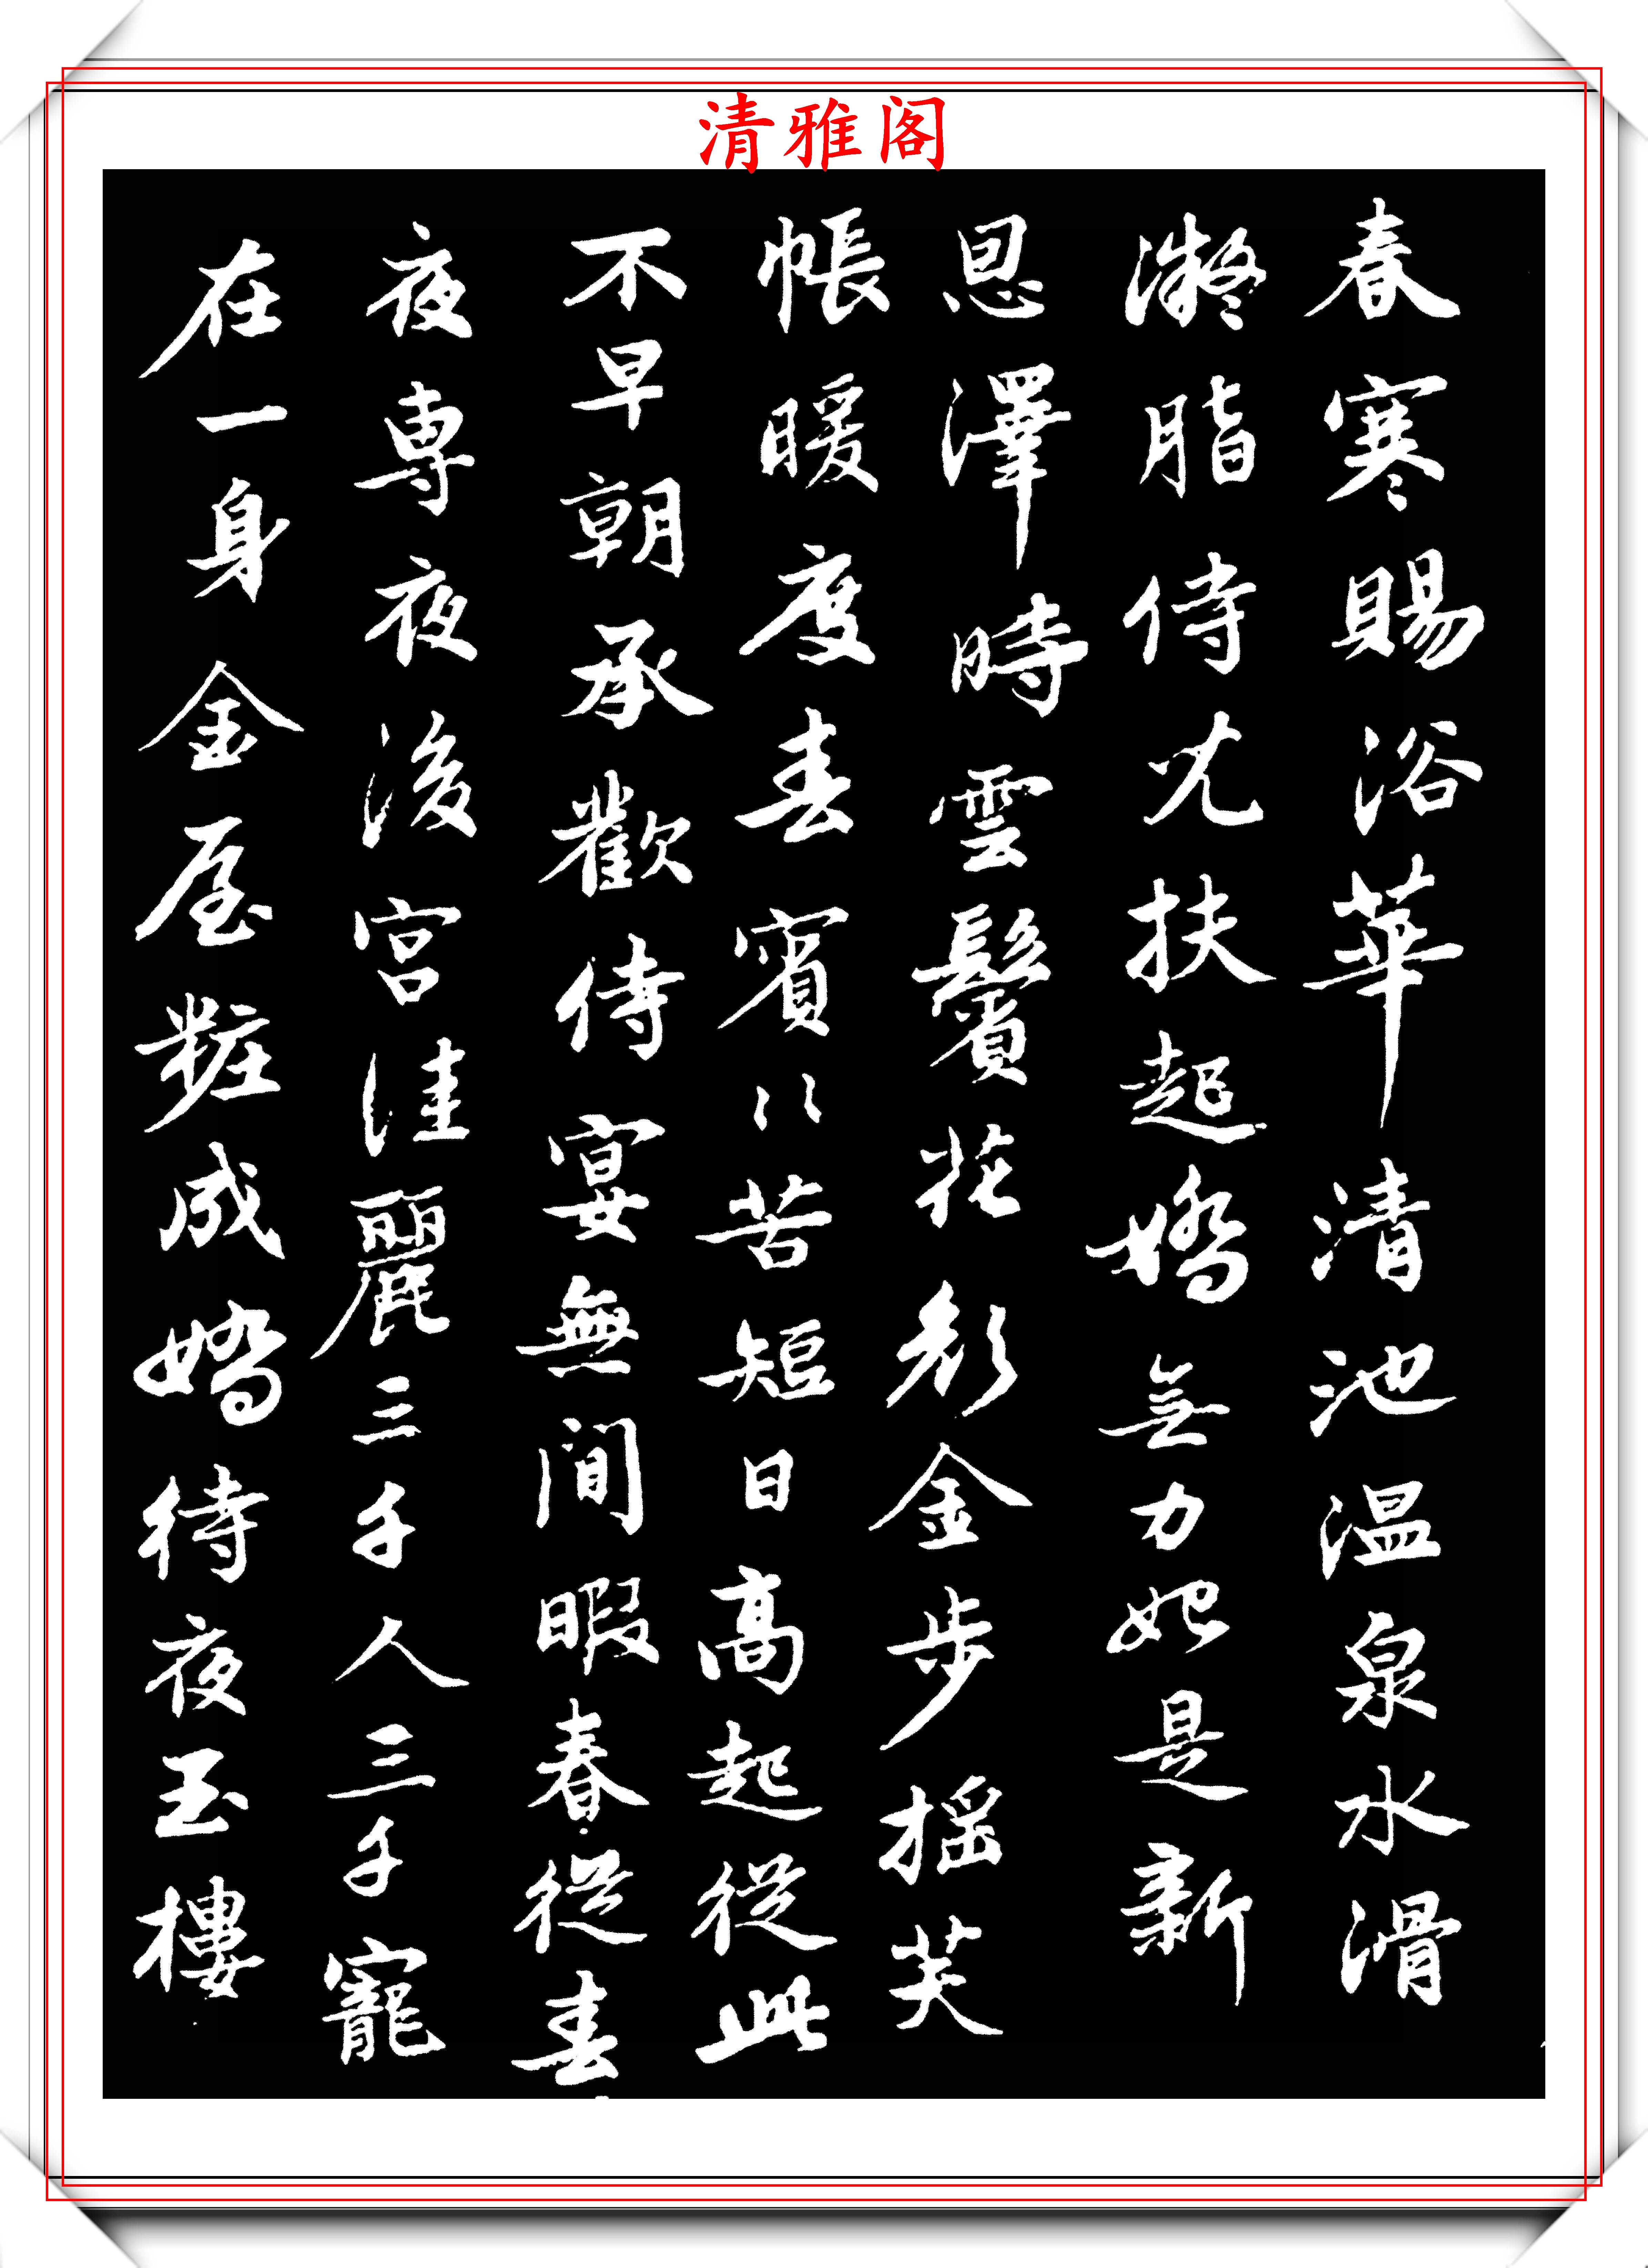 清雅阁
春寒賜浴華清池温泉水滑
凝脂侍児扶起嬌無力始是新
恩澤時雲鬢花顔金步摇芙
帳暖度春宵〻〻苦短日高起從此
不早朝承歡侍宴無间暇春從春
夜専夜後宮佳麗三千人三千寵
在一身金屋粧成嬌待夜玉樓